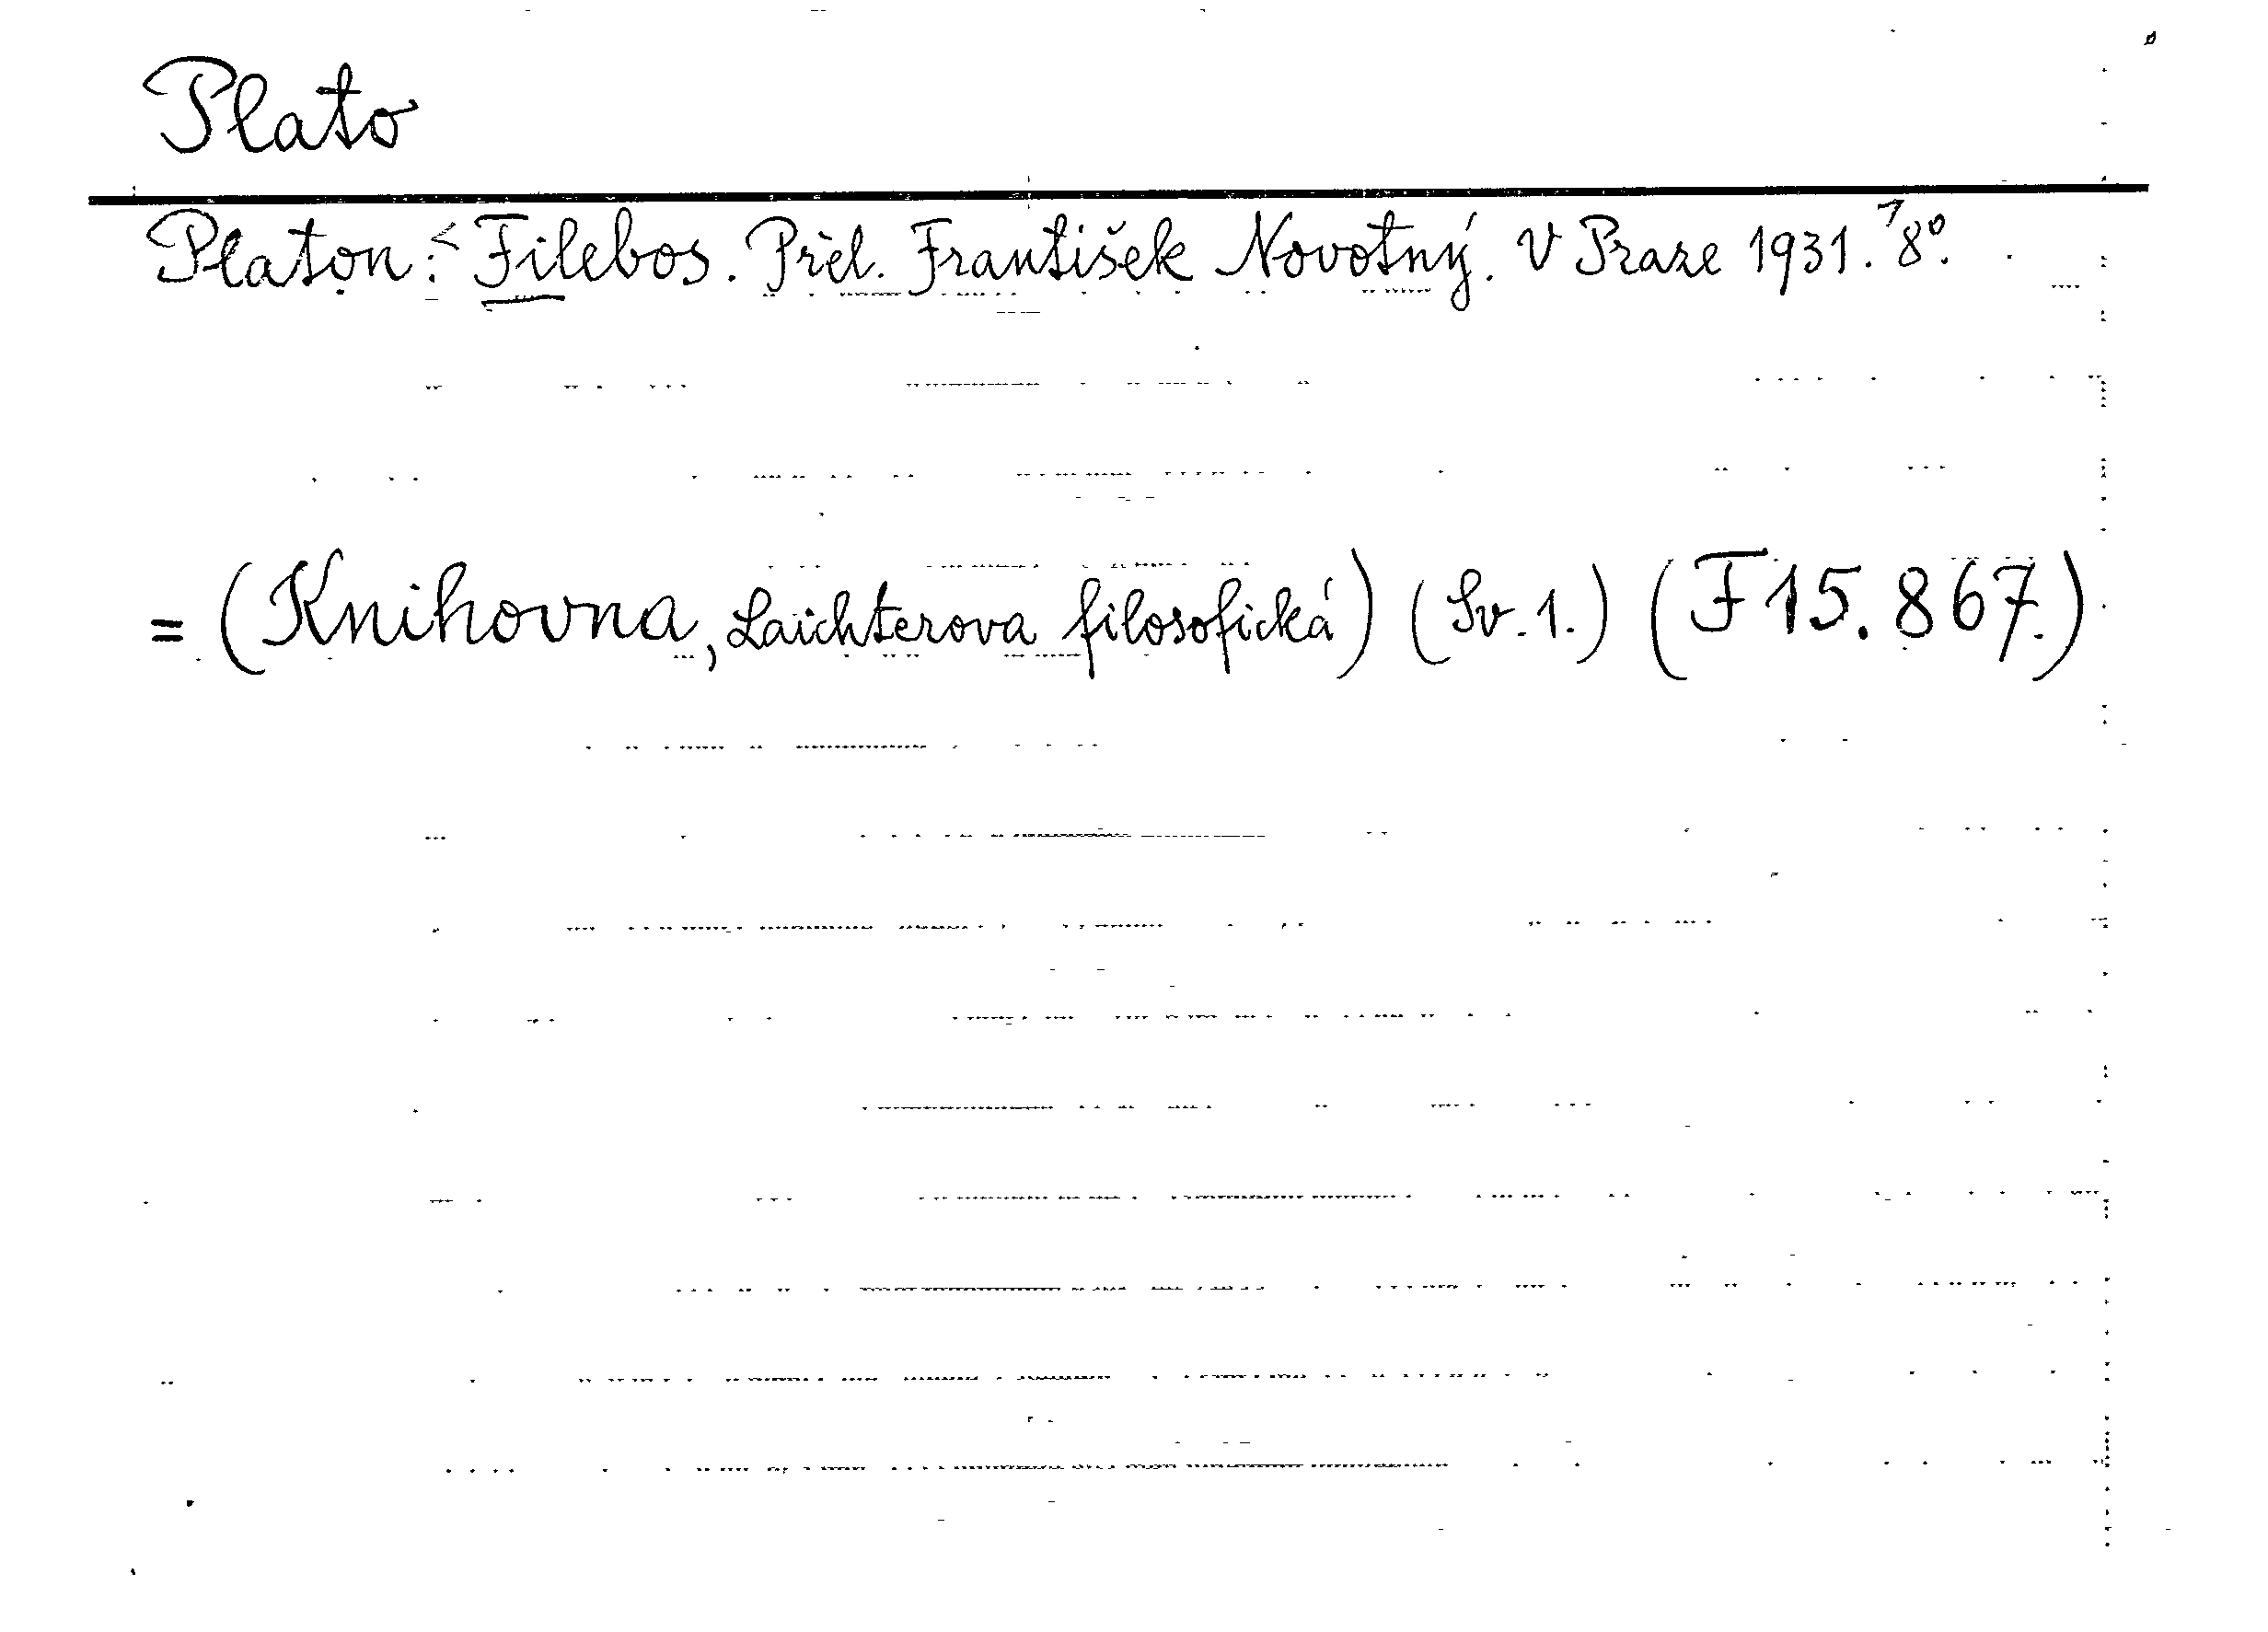 Plato
Platon: Filebos. Přel. František Novotný. V Praze 1931. 8°.
= (Knihovna, Laichterova filosofická) (Sv. 1.) (F 15.867.)